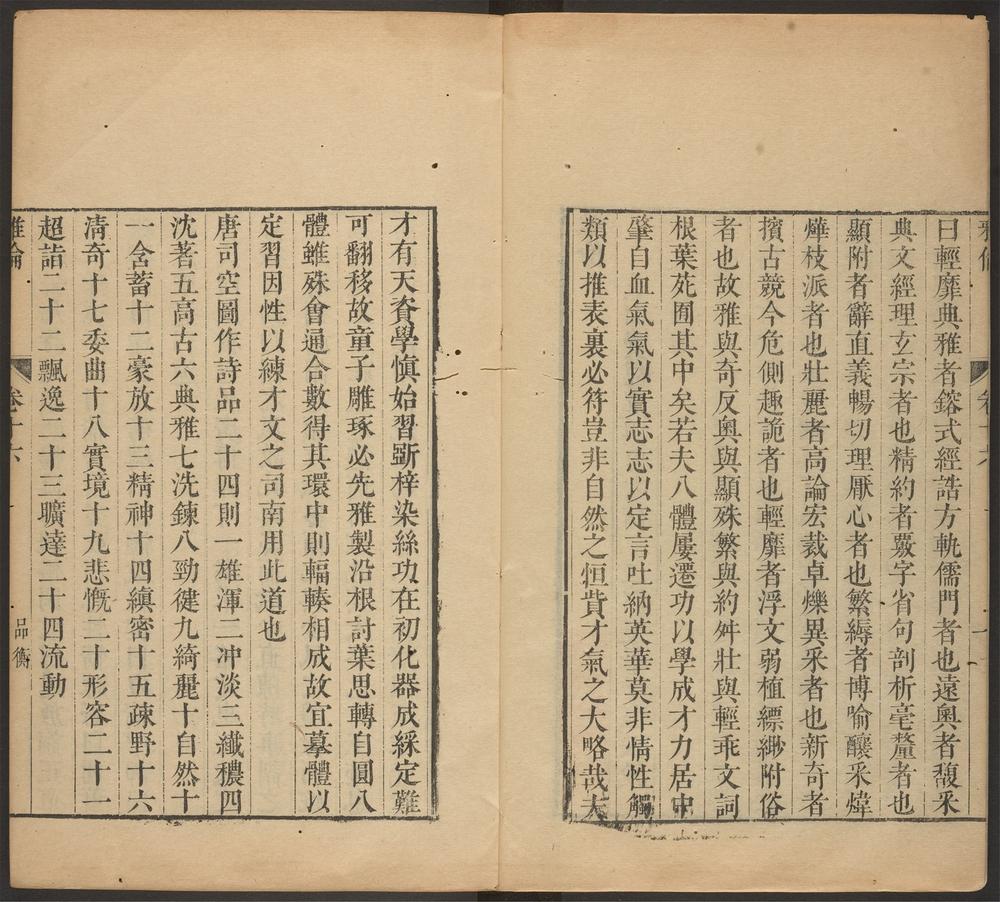 卷十六
曰輕靡典雅者鎔式經誥方軌儒門者也遠奧者馥采
典文經理玄宗者也精約者覈字省句剖析毫釐者也
顯附者辭直義暢切理厭心者也繁縟者博喻釀采煒
燁枝派者也壯麗者高論宏裁卓爍異采者也新奇者
擯古競今危側趣詭者也輕靡者浮文弱植縹緲附俗
者也故雅與奇反奧與顯殊繁與約舛壯與輕乖文詞
根葉苑囿其中矣若夫八體屢遷功以學成才力居中
肇自血氣氣以實志志以定言吐納英華莫非情性觸
類以推表裏必符豈非自然之恒貲才氣之大略哉夫
才有天資學慎始習斲梓染絲功在初化器成綵定難
可翻移故童子雕琢必先雅製沿根討葉思轉自圓八
體雖殊會通合數得其環中則輻輳相成故宜摹體以
定習因性以練才文之司南用此道也
唐司空圖作詩品二十四則一雄渾二冲淡三纖穠四
沈著五高古六典雅七洗鍊八勁健九綺麗十自然十
一含蓄十二豪放十三精神十四縝密十五疎野十六
淸奇十七委曲十八實境十九悲慨二十形容二十一
超詣二十二飄逸二十三曠達二十四流動
卷十六
品衡